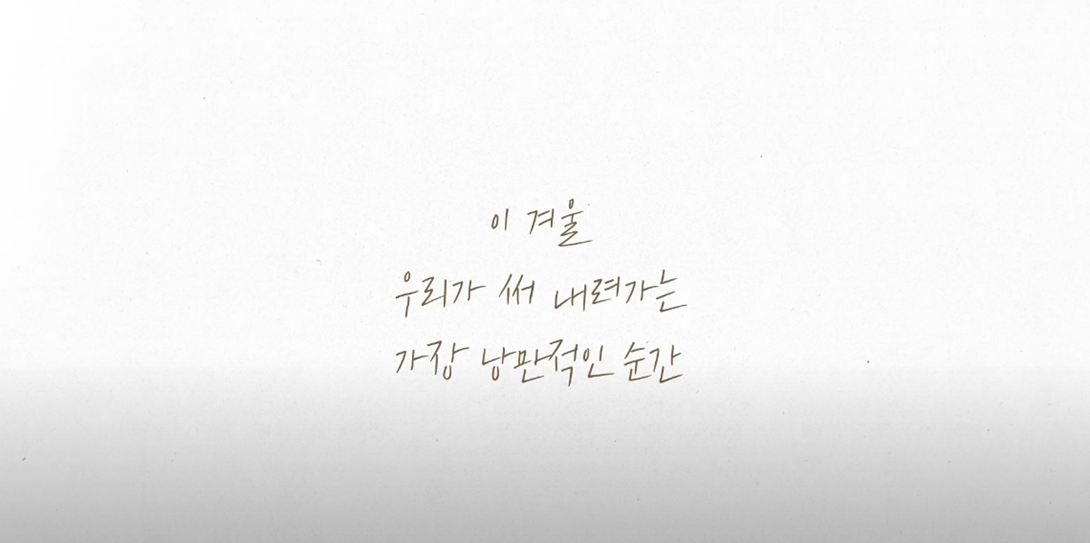 이 겨울
우리가 써 내려가는
가장 낭만적인 순간